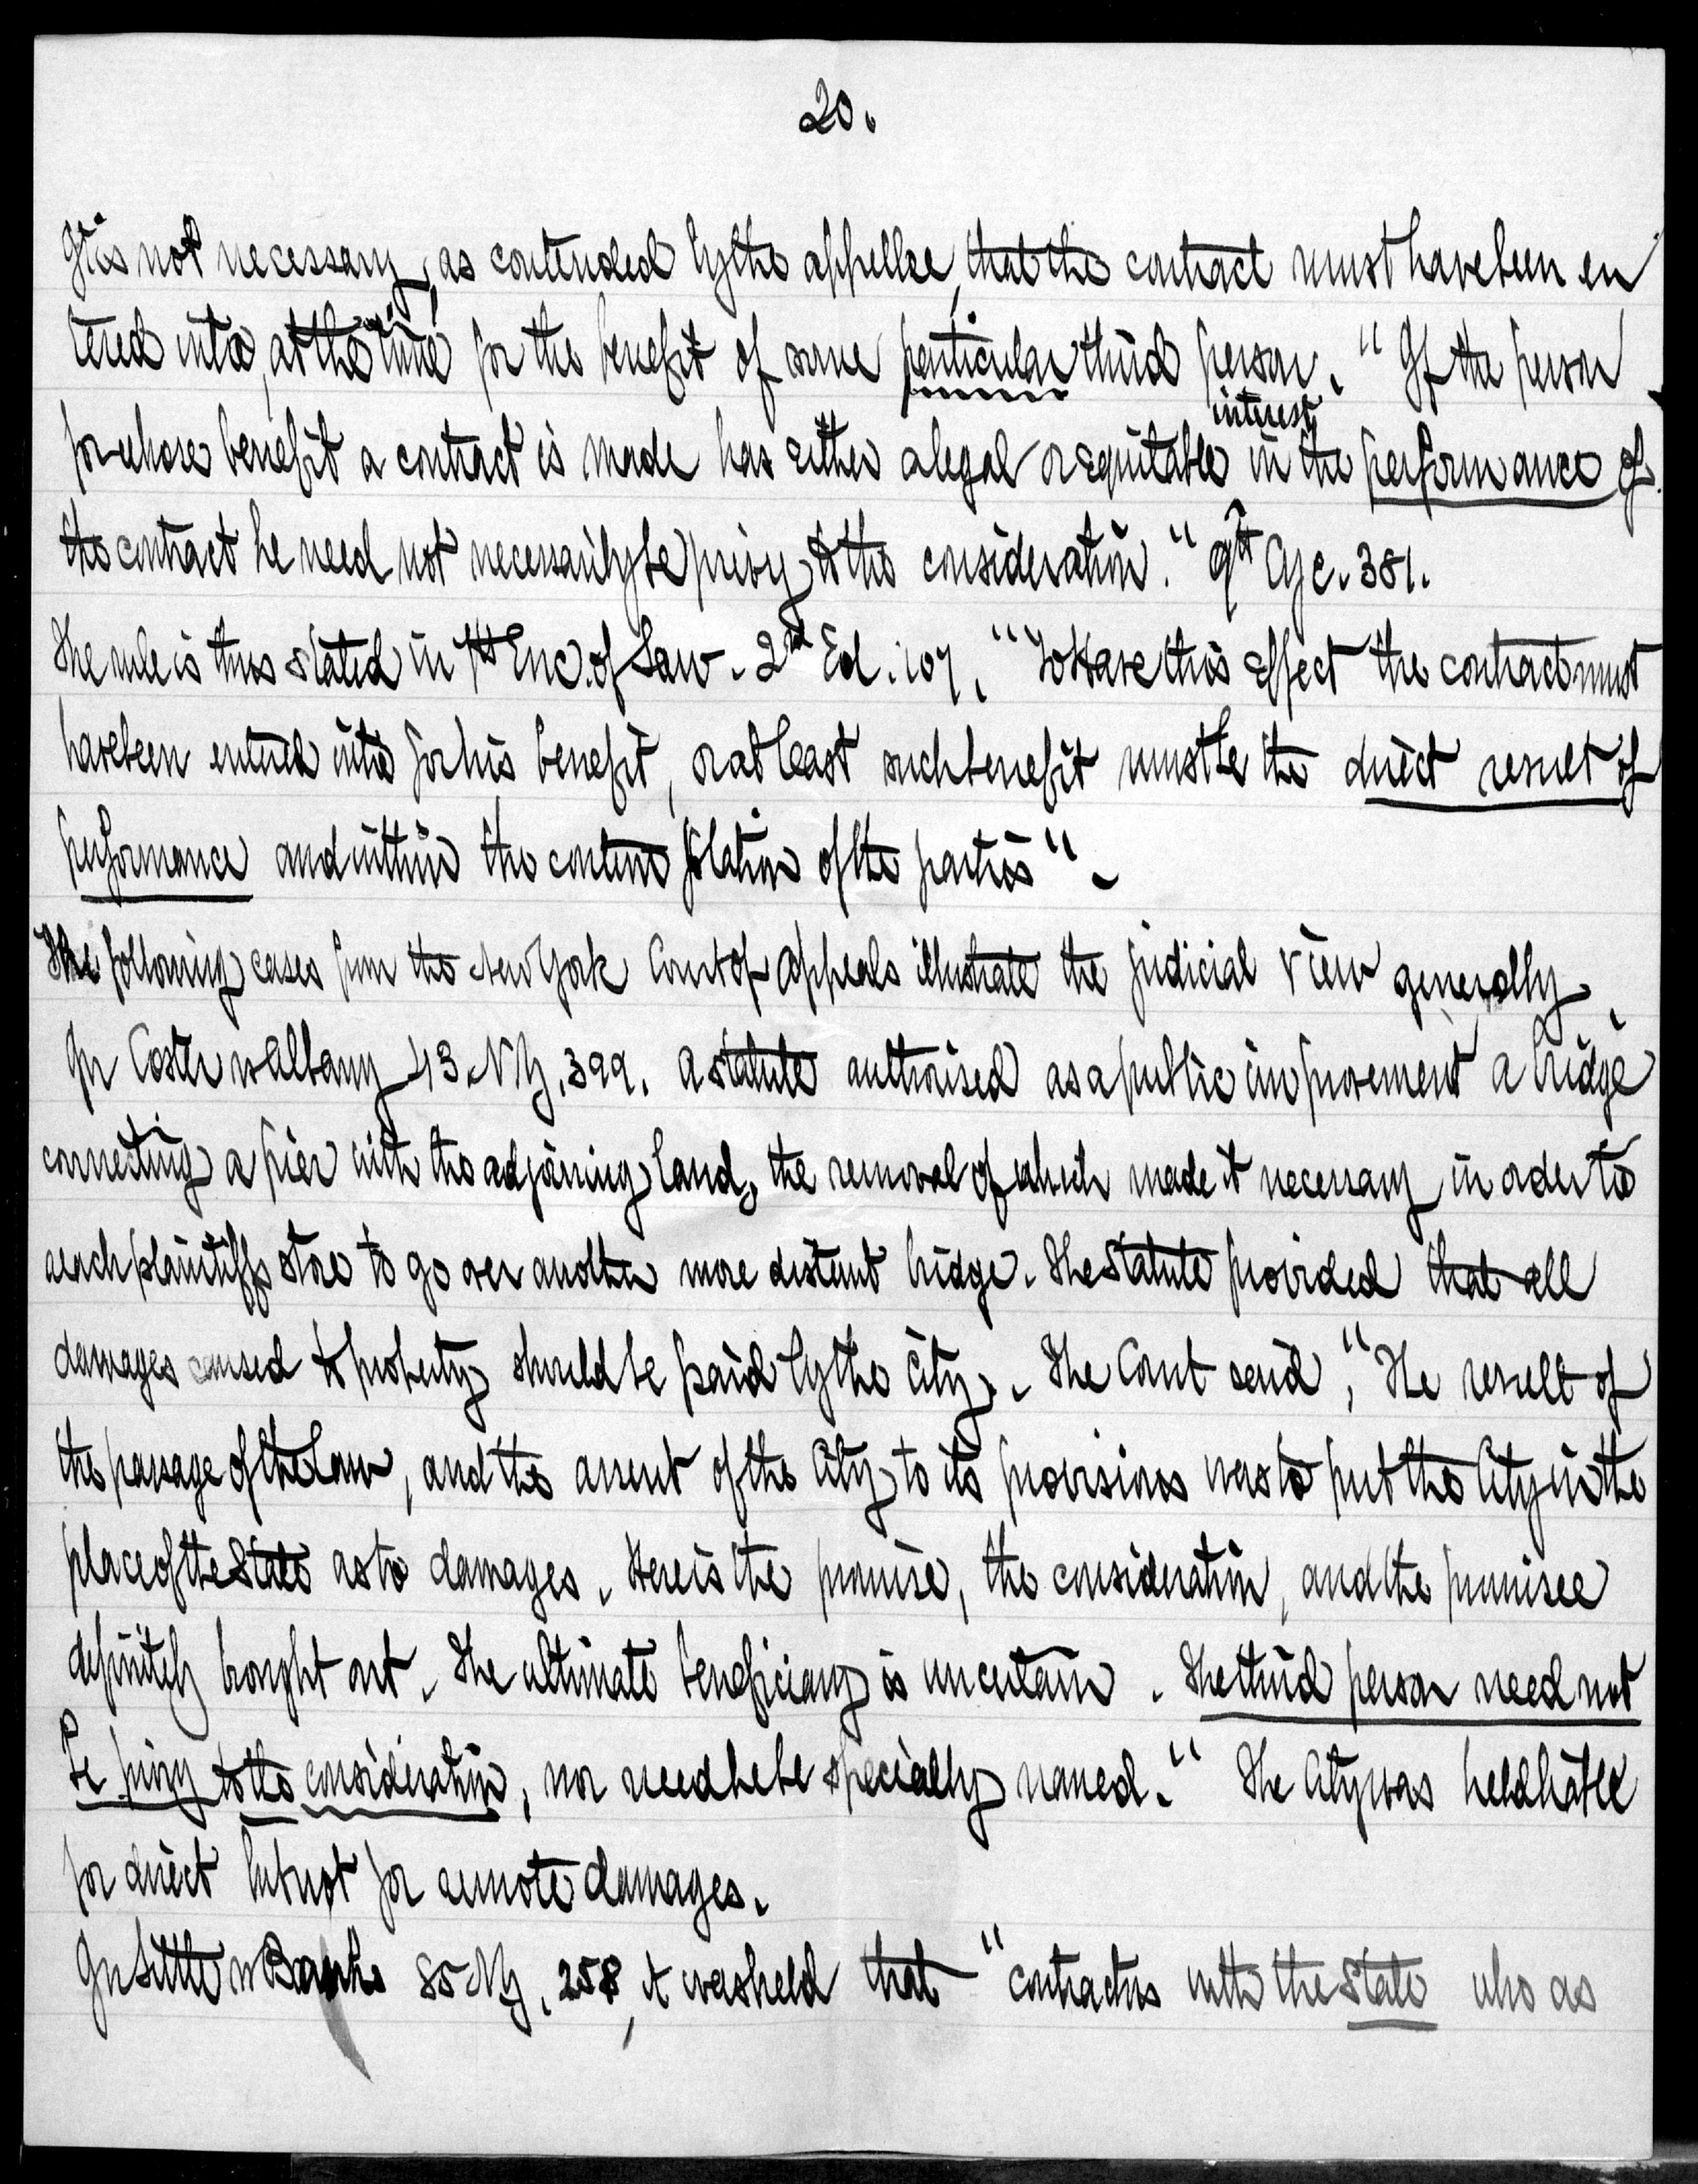 20.
It is not necessary, as contended by the appellee, that the contract must have been en
tered into, at the time for the benefit of some particular third person. "If the person
for whose benefit a contract is made has either a legal or equitable interest in the performance of
the contract he need not necessarily be privy to the consideration." 9th Cyc. 381.
The rule is thus stated in 7th Enc. of Law. 2nd Ed. 107. "To Have this effect the contract must
have been entered into for his benefit, or at least such benefit must be the direct result of
performance and within the contemplation of the parties".
The following cases from the New York Court of Appeals illustrate the judicial view generally.
In Coster vs Albany 43 N.Y. 399. a statute authorised as a public improvement a bridge
connecting a pier with the adjoining land, the removal of which made it necessary in order to
reach plaintiffs store to go over another more distant bridge. The statute provided that all
damages caused to property should be paid by the City. The Court said, "The result of
the passage of the law, and the assent of the City to its provisions was to put the City in the
place of the State as to damages. Here is the promise, the consideration, and the promisee
definitely brought out. The ultimate beneficiary is uncertain. The third person need not
be privy to the consideration, nor need he be specially named." The City was held liable
for direct but not for remote damages.
In Little vs Banks 85 N.Y. 258, it was held that "contractors with the State who as